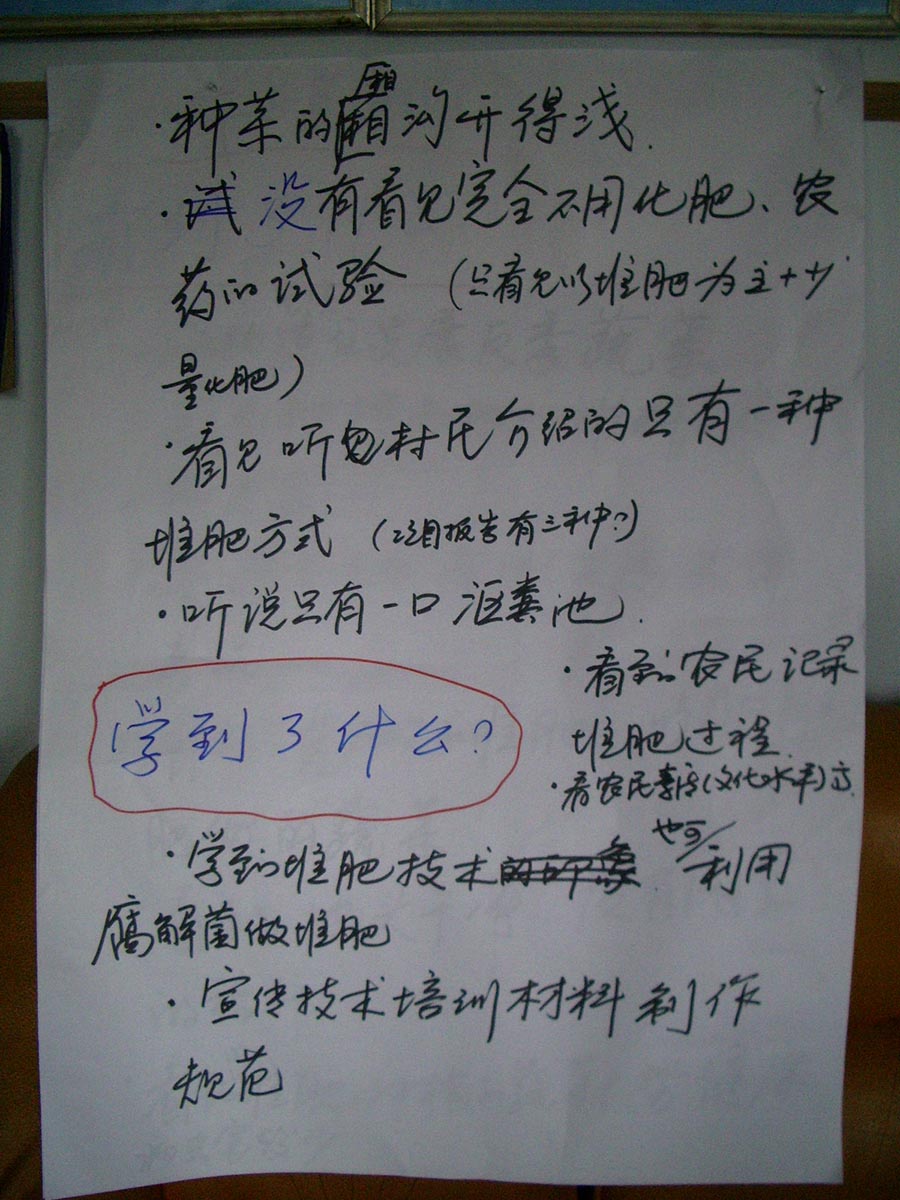 ·种菜的厢沟开得浅.
·没有看见完全不用化肥、农
药的试验 (只看见以堆肥为主+少
量化肥)
·看见听见村民介绍的只有一种
堆肥方式 (项目报告有三种?)
·听说只有一口沤粪池.
·看到农民记录
堆肥过程.
·看农民素质(文化水平)高.
学到了什么?
·学到堆肥技术.也可利用
腐解菌做堆肥
·宣传技术培训材料制作
规范